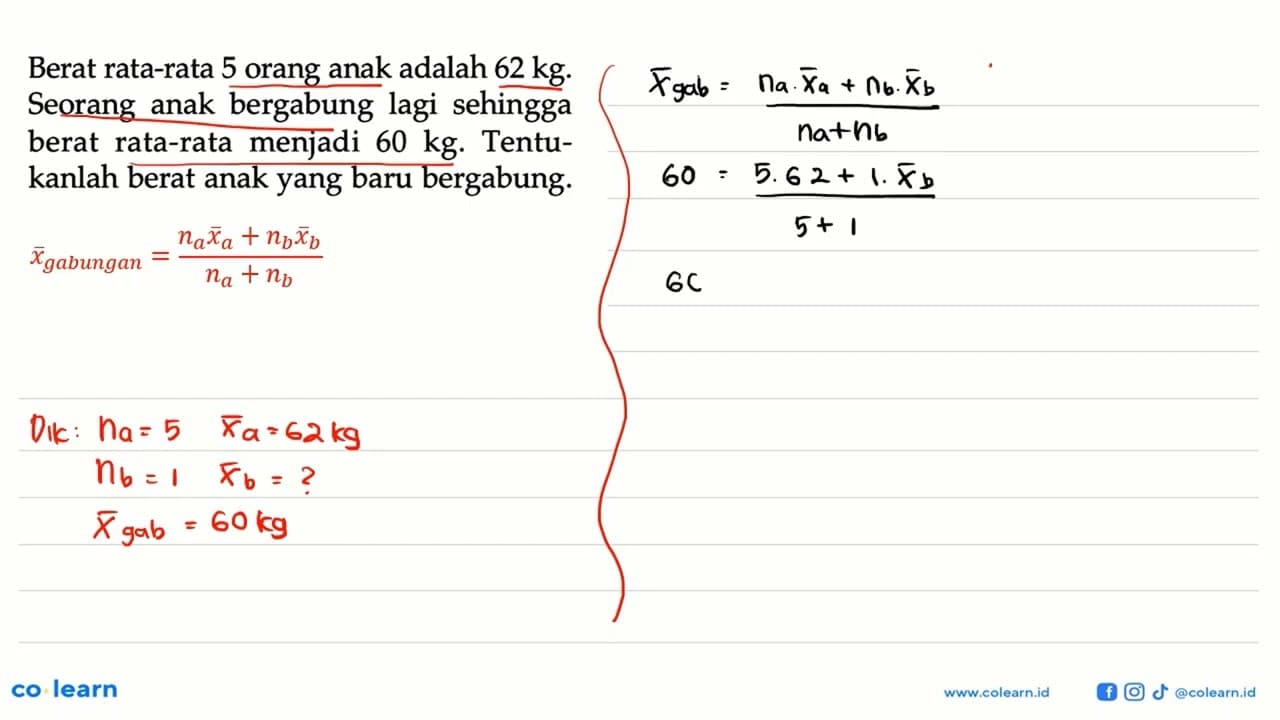 Berat rata-rata 5 orang anak adalah 62 kg.
Seorang anak bergabung lagi sehingga
berat rata-rata menjadi 60 kg. Tentu-
kanlah berat anak yang baru bergabung.
x̄gabungan = (nₐx̄ₐ + n_b x̄_b) / (nₐ + n_b)
Dik: na = 5 x̄a = 62 kg
nb = 1 x̄b = ?
x̄gab = 60 kg
x̄gab = na . x̄a + nb . x̄b
na + nb
60 = 5 . 62 + 1 . x̄b
5 + 1
6C
co learn
www.colearn.id @colearn.id